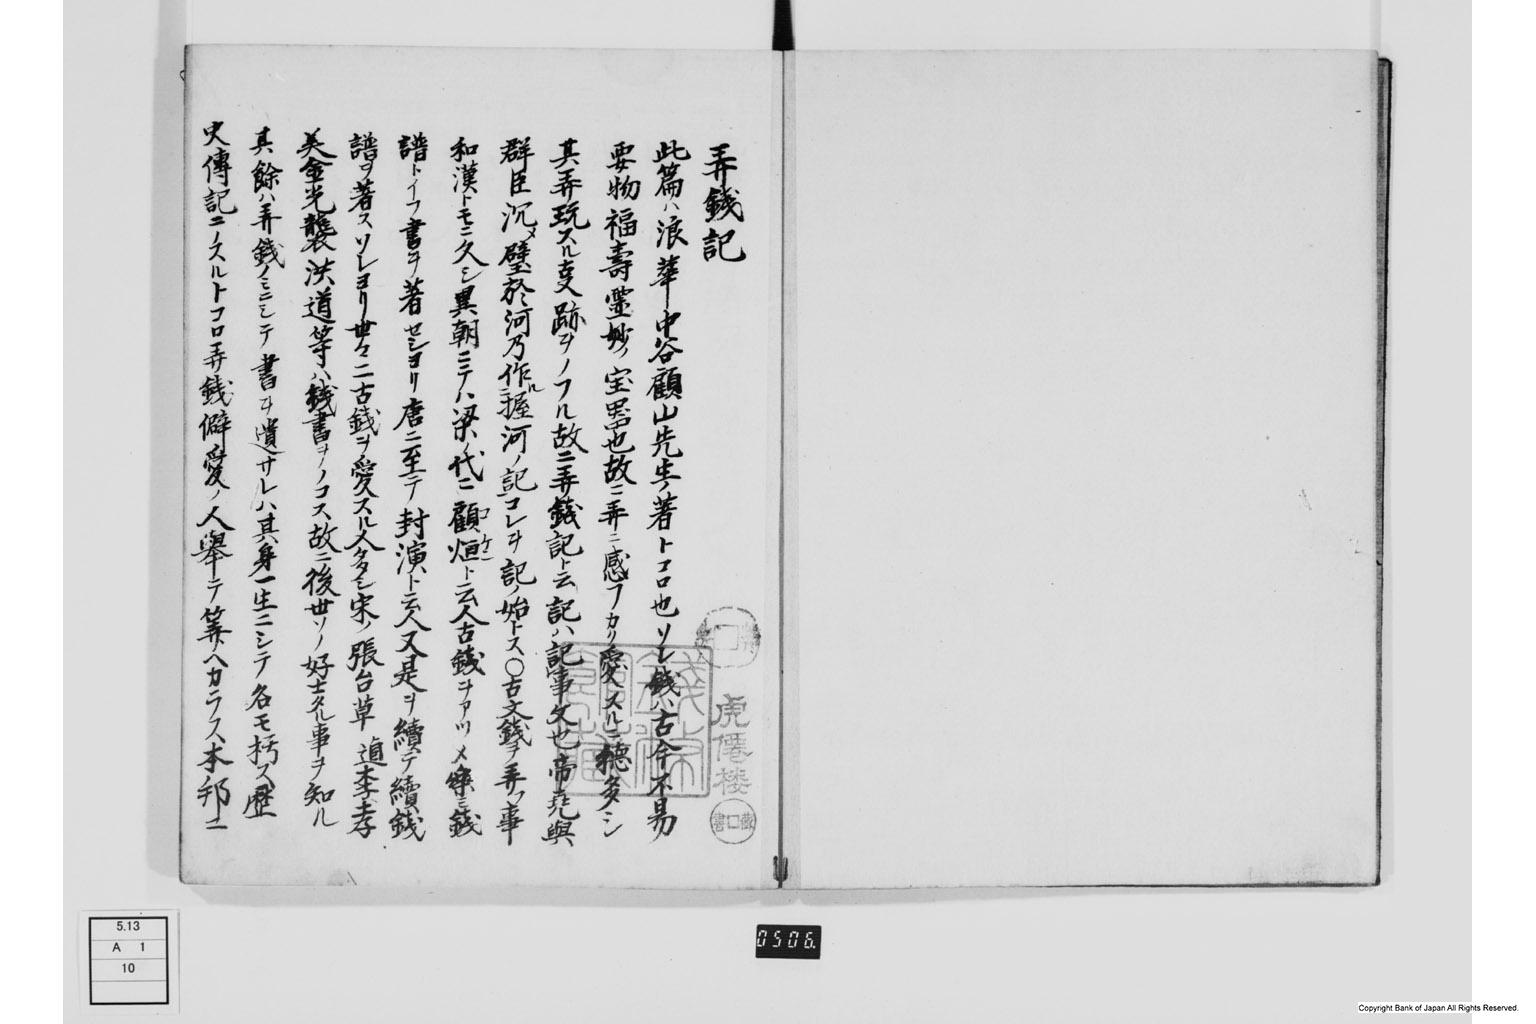 弄錢記
此篇ハ浪華中谷顧山先生ノ著トコロ也ソレ錢ハ古今不易
要物福壽霊妙ノ宝器也故ニ弄ニ感フカク愛スルニ徳多シ
其弄玩スル叓跡ヲノフル故ニ弄錢記ト云記ハ記事文也帝堯與
群臣沉メ璧於河乃作ル握河ノ記コレヲ記ノ始トス○古文錢ヲ弄フ事
和漢トモニ久シ異朝ニテハ梁ノ代ニ顧烜ト云人古錢ヲアツメ集ミ錢
譜トイフ書ヲ著セシヨリ唐ニ至テ封演ト云人又是ヲ續テ續錢
譜ヲ著スソレヨリ世々ニ古錢ヲ愛スル人多シ宋ノ張台草逌李孝
美金光襲洪遵等ハ錢書ヲノコス故ニ後世ソノ好士タル事ヲ知ル
其餘ハ弄錢ノミニシテ書ヲ遺サレハ其身一生ニシテ名モ朽ス歴
史傳記ニノスルトコロ弄錢僻愛ノ人舉テ算ヘカラス本邦ニ
虎僊楼
5.13
A 1
10
0506.
Copyright Bank of Japan All Rights Reserved.